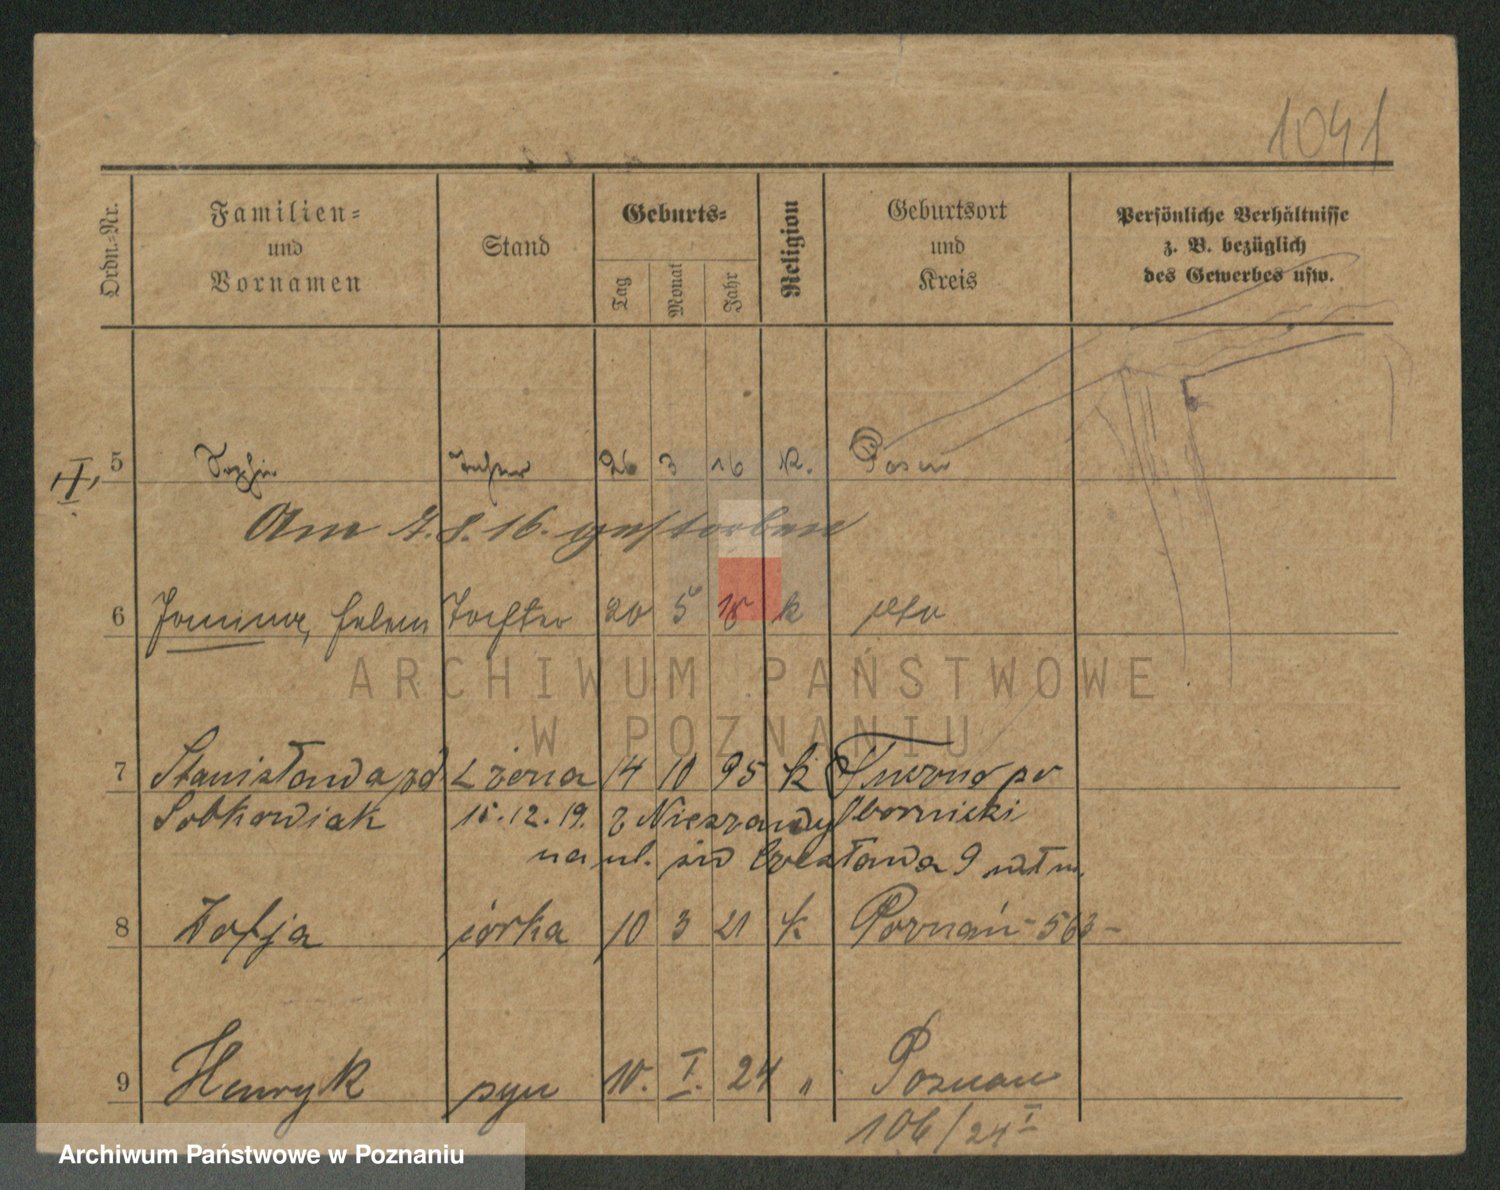 1041
Ordn.-Nr.
Familien-
und
Vornamen
Stand
Geburts-
Tag
Monat
Jahr
Religion
Geburtsort
und
Kreis
Persönliche Verhältnisse
z. B. bezüglich
des Gewerbes usw.
5 Sophie Tochter 26 3 16 K. Posen
Am 7.8.16. gestorben
6 Janina, Helene Tochter 20 5 18 k dto
7 Stanisława zd żona 14 10 95 k
Sobkowiak 15.12.19. z Nieszawy Obornicki
na ul. 9
8 Zofja córka 10 3 21 k Poznań - 563 -
9 Henryk syn 10. I. 24 " Poznań
106/24 I
ARCHIWUM PAŃSTWOWE
W POZNANIU
Archiwum Państwowe w Poznaniu